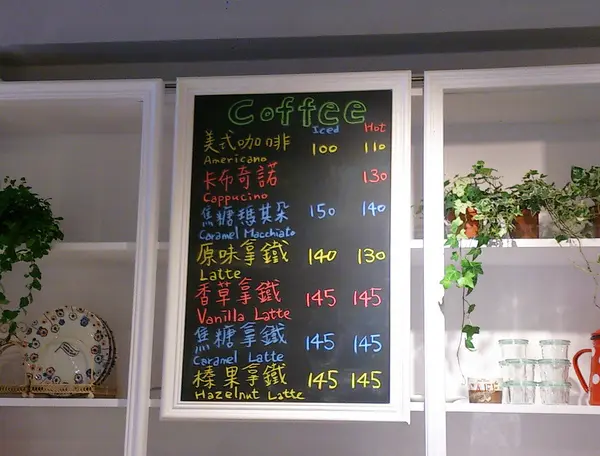 Coffee
Iced Hot
美式咖啡 100 110
Americano
卡布奇諾 130
Cappucino
焦糖瑪其朵 150 140
Caramel Macchiato
原味拿鐵 140 130
Latte
香草拿鐵 145 145
Vanilla Latte
焦糖拿鐵 145 145
Caramel Latte
榛果拿鐵 145 145
Hazelnut Latte